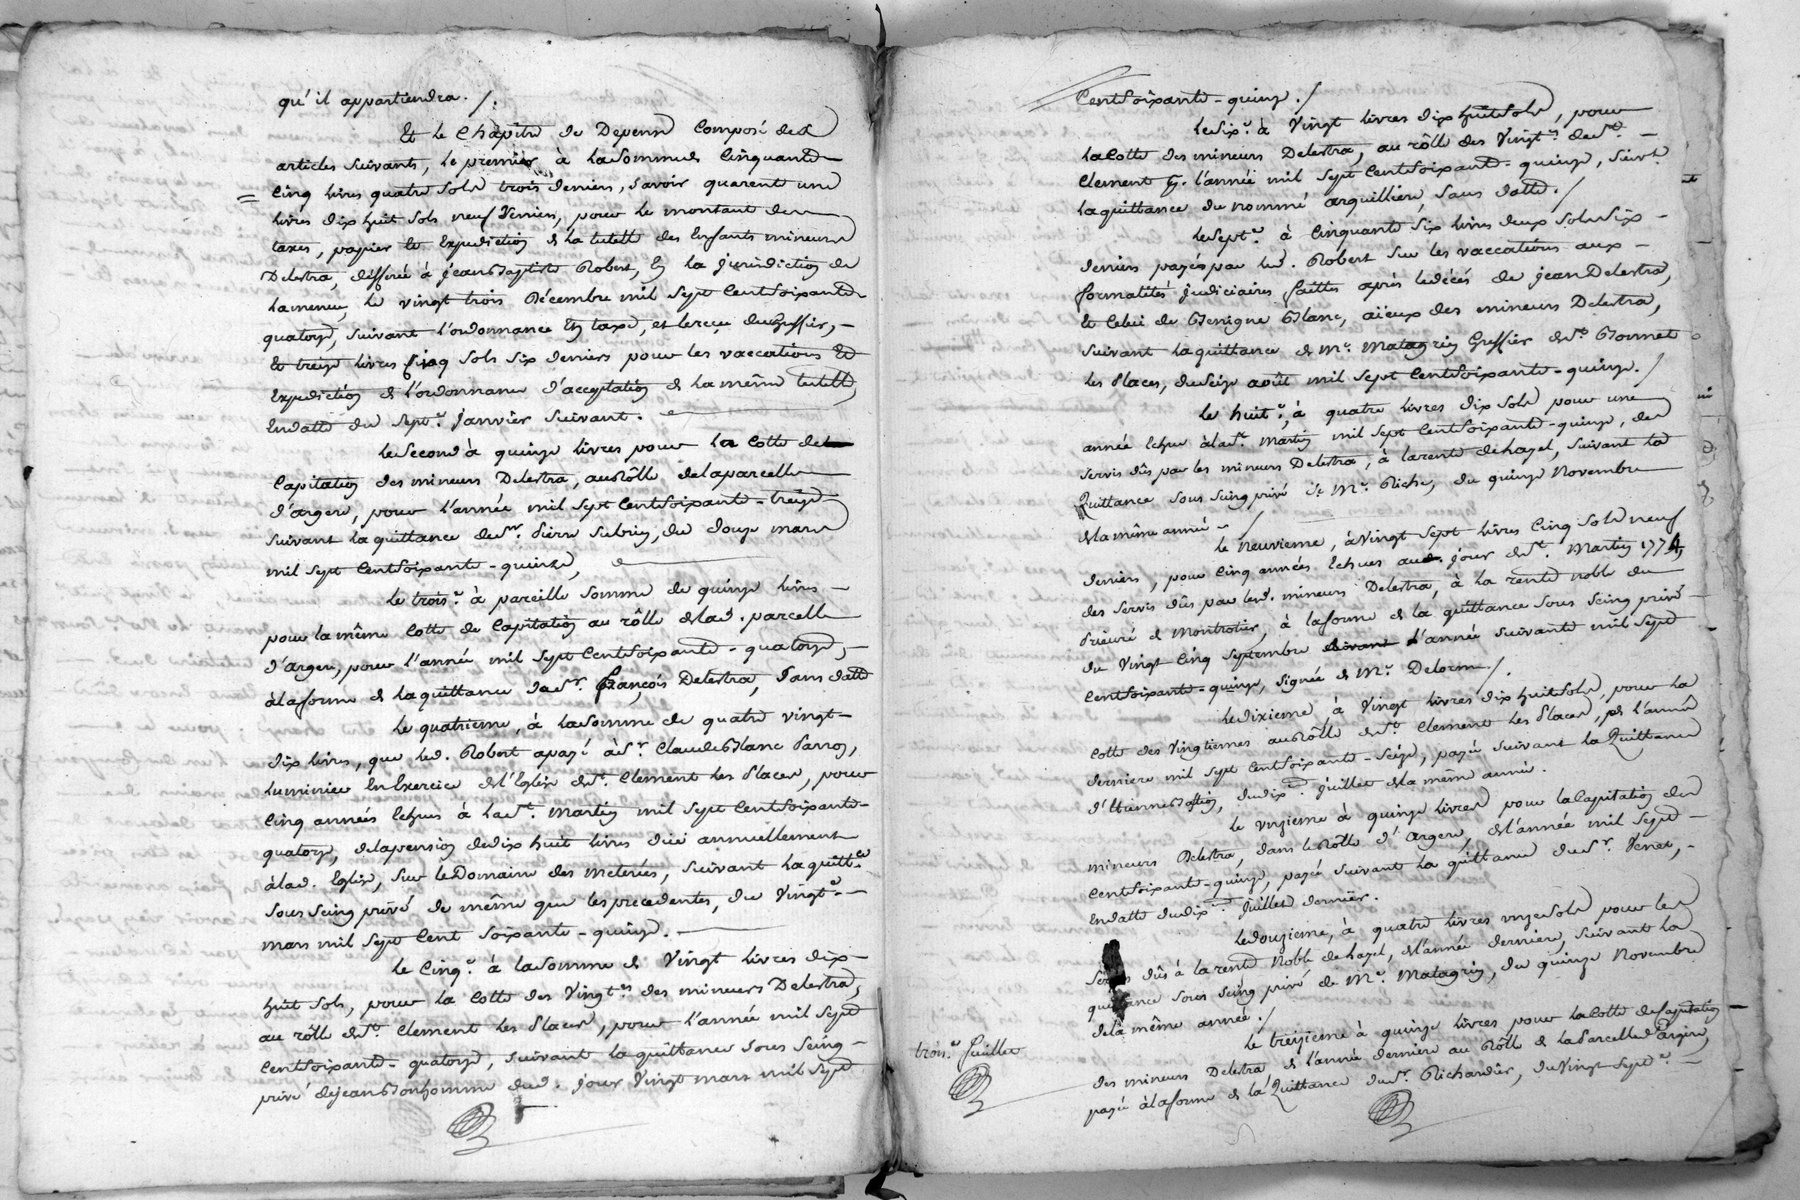 qu'il appartiendra ./.
Et le Chapitre de Depense Composé des
articles suivants, le premier à la somme de Cinquante
Cinq livres quatre sols trois deniers, savoir quarent une
livres dix huit sols neuf deniers, pour le montant des
taxes, papier et Expedition de la tutelle des Enfants mineurs
Delestra, differée à jean Baptiste Robert, En la jurisdiction de
lamenue, le vingt trois Décembre mil sept Cent soixante
quatorze, suivant l'ordonnance En taxe, et le reçu du Greffier, -
Et treize livres Cinq sols six deniers pour les vaccations Et
Expedition de l'ordonnance d'acceptation de la même tutelle,
En datte du sept.e Janvier suivant.
Le second à quinze livres pour la Cotte de
Capitation des mineurs Delestra, au Rôlle de la parcelle
d'argere, pour l'année mil sept Cent soixante-treize
suivant la quittance de sr. Pierre Subrin, du douze mars
mil sept Cent soixante-quinze,
Le trois.e à pareille somme de quinze livres -
pour la même Cotte de Capitation au rôlle de lad. parcelle
d'argere, pour l'année mil sept Cent soixante-quatorze, -
à la forme de la quittance dud. sr. François Delestra, sans datte
Le quatrieme, à la somme de quatre vingt-
dix livres, que led. Robert a payé à sr. Claude Blanc Parroy,
luminier En Exercice de l'Eglise de st. Clement les Places, pour
Cinq années Echues à la st. Martin mil sept Cent soixante-
quatorze, de la pension de dix huit livres düe annuellement
à lad. Eglise, sur le Domaine des Meteriés, suivant la quitt.ce
sous seing privé de même que les precedentes, du Vingt.e -
mars mil sept Cent soixante-quinze.
Le Cinq.e à la somme de Vingt livres dix-
huit sols, pour la Cotte des Vingt.es des mineurs Delestra,
au rôlle de st. Clement les Places, pour l'année mil sept
Cent soixante-quatorze, suivant la quittance sous seing-
privé de jean Bonhomme dud. jour Vingt mars mil sept
Cent soixante-quinze ./
Le six.e à Vingt livres dix huit sols, pour
la Cotte des mineurs Delestra, au rôlle des Vingt.es de st. -
Clement p. l'année mil sept Cent soixante-quinze, suiv.t
la quittance du nommé arquilliere sans datte ./
Le sept.e à Cinquante six livres deux sols six -
deniers payés par led. Robert sur les vaccations aux -
formalités judiciaires faittes après le décés de jean Delestra,
Et Celui de Benigne Blanc, aïeux des mineurs Delestra,
suivant la quittance de Mr. Matagrin Greffier de st. Bonnet
les Places, du seize août mil sept Cent soixante-quinze ./
Le huit.e, à quatre livres dix sols pour une
année Echue à la st. Martin mil sept Cent soixante-quinze, des
servis dûs par les mineurs Delestra, à la rente de hazel, suivant la
Quittance sous seing privé de Mr. Riche, du quinze Novembre
de la même année ./
Le neuvieme, à Vingt sept livres Cinq sols neuf
deniers, pour Cinq années Echues aud. jour de st. Martin 1774,
des servis dûs par lesd. mineurs Delestra, à la rente noble du
Prieuré de Montrotier, à la forme de la quittance sous seing privé -
du Vingt Cinq septembre l'année suivante mil sept
Cent soixante-quinze, signée de Mr. Delorme ./.
Le dixieme à Vingt livres dix huit sols, pour la
Cotte des Vingtiemes au Rôlle de st. Clement les Places, p. l'année
derniere mil sept Cent soixante-seize, payée suivant la Quittance
du dix.e juillet de la même année.
Le unzieme à quinze livres pour la Capitation des
mineurs Delestra, dans le Rôlle d'Argere, de l'année mil sept -
Cent soixante-quinze, payée suivant la quittance du sr. Venet, -
En datte du dix.e juillet dernier.
Le douzieme, à quatre livres unze sols pour les
dûs à la rente Noble de hazel, de l'année derniere, suivant la
quittance sous seing privé de Mr. Matagrin, du quinze Novembre
de la même année ./
Le treizieme à quinze livres pour la Cotte de Capitation
des mineurs Delestra de l'année derniere au Rôlle de la Parcelle d'Argere,
payée à la forme de la Quittance du sr. Richardier, du Vingt sept.e -
trois.e feuillet